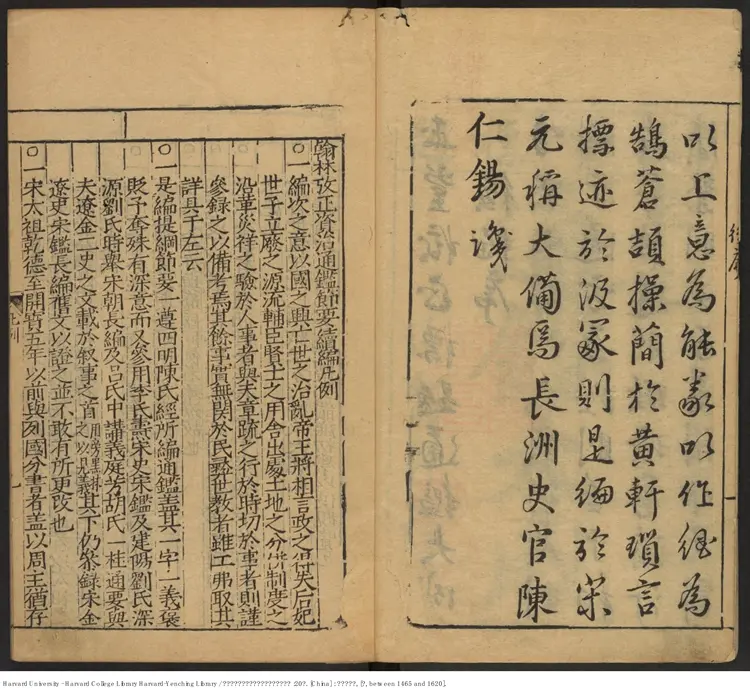 以工意為能豢以作経為
鵠蒼頡操簡於黄軒瑣言
摽迹於汲冢則是編於宋
元稱大備焉長洲史官陳
仁錫譔
翰林攷正資治通鑑節要續編凡例
○一編次之意以國之興亡世之治亂帝王將相言政之得失后妃
世子立廢之源流輔臣賢士之用舍出處土地之分制度之
沿革災祥之驗於人事者與夫章疏之行於時切於事者則謹
參録之以備考焉其餘事實無関於民彛世教者雖工弗取其
詳具于左云
○一是編提綱節要一遵四明陳氏經所編通鑑其一字一義褒
貶予奪殊有深意而又參用李氏燾宋史宋鑑及建陽劉氏深
源劉氏時舉宋朝長編及吕氏中講義庭芳胡氏一桂通要與
夫遼金二史之文載於叙事之首之以見義其下仍叅録宋金
遼史宋鑑長編舊文以證之並不敢有所更改也
○一宋太祖乾德至開寶五年以前與列國分書者盖以周主猶存
凡例
一
Harvard University - Harvard College Library Harvard-Yenching Library / ?????????????????? :20?. [China] : ?????, [?, between 1465 and 1620].